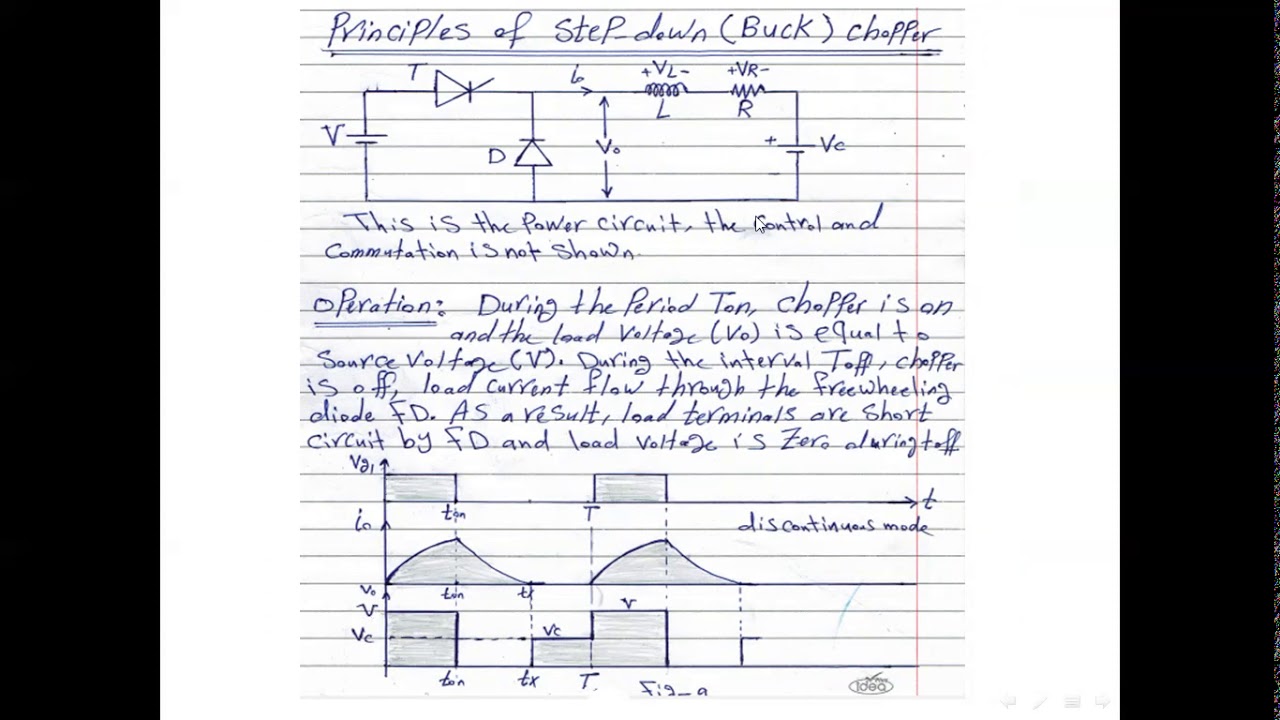 Principles of Step-down (Buck) chopper
T
io
+VL-
+VR-
L
R
V
D
Vo
+
Vc
This is the Power circuit, the control and
Commutation is not shown.
Operation: During the Period Ton, chopper is on
and the load Voltage (Vo) is equal to
Source Voltage (V). During the interval Toff, chopper
is off, load current flow through the freewheeling
diode FD. As a result, load terminals are short
circuit by FD and load voltage is Zero during toff
Vg1
ton
T
t
io
discontinuous mode
Vo
ton
tx
V
V
Vc
Vc
ton
tx
T
Fig-a
idea